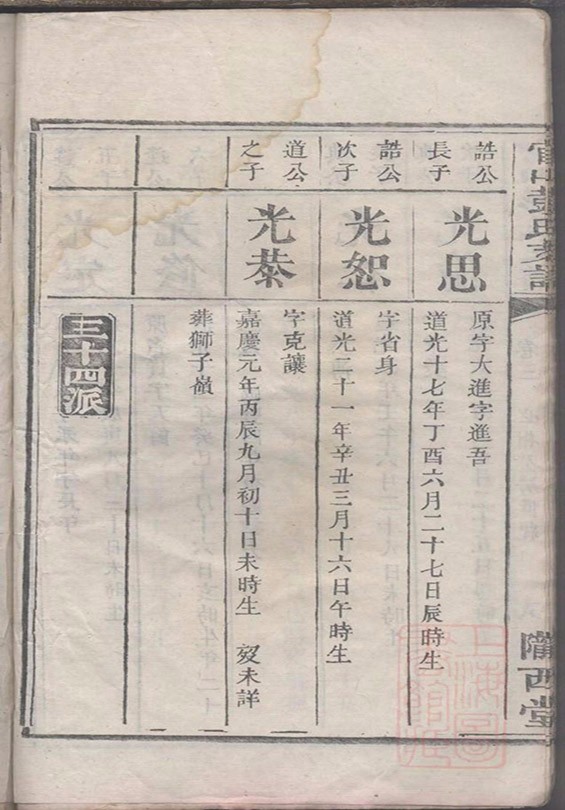 彭氏支譜
隴西堂
誥公
長子
光思
原字大進字進吾
道光十七年丁酉六月二十七日辰時生
誥公
次子
光恕
字省身
道光二十一年辛丑三月十六日午時生
道公
之子
光恭
字克讓
嘉慶元年丙辰九月初十日未時生 歿未詳
葬獅子嶺
三十四派